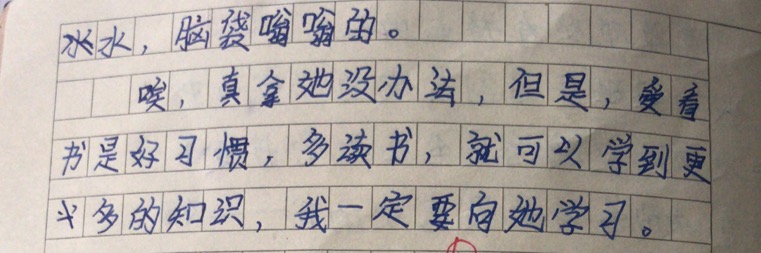 水水，脑袋嗡嗡的。
唉，真拿她没办法，但是，爱看
书是好习惯，多读书，就可以学到更
多的知识，我一定要向她学习。